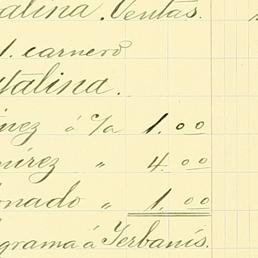 alina. Ventas.
1. carnero
talina.
nez á c/a 1.00
mirez " 4.00
onado " 1.00
grama á Yerbanís.